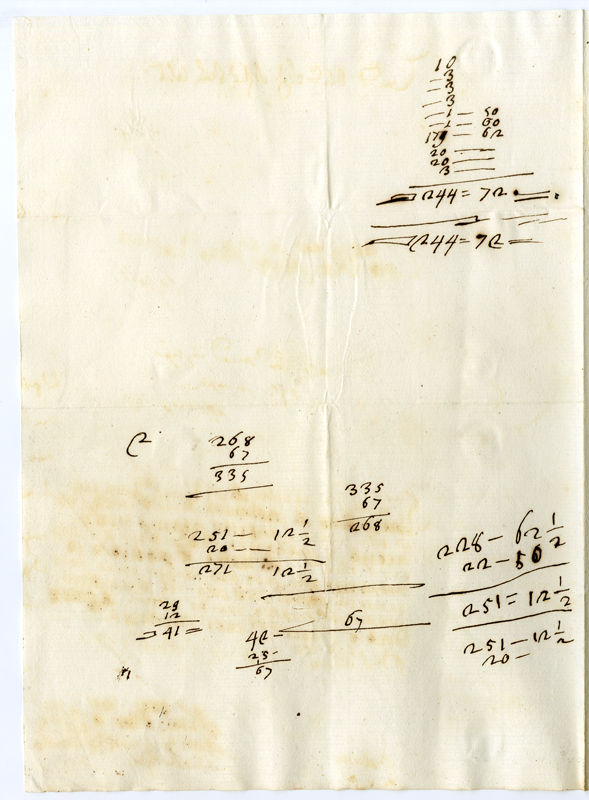 10
3
3
3
1 — 50
1 — 60
179 — 62
20 —
20 —
3 —
244 = 72
244 = 72
2
268
67
335
335
67
268
251 — 12 1/2
20 —
271 12 1/2
228 — 62 1/2
22 — 50
251 = 12 1/2
251 — 12 1/2
20 —
29
12
41 =
67
42 —
25 —
67